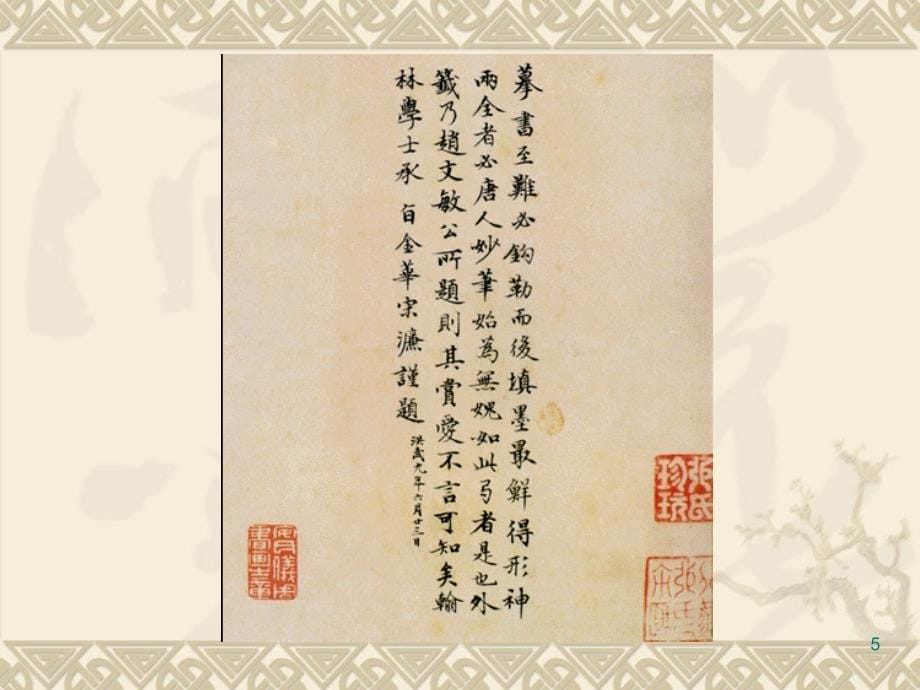 摹書至難必鈎勒而後填墨最鮮得形神
兩全者必唐人妙筆始為無媿如此弓者是也外
籤乃趙文敏公所題則其賞愛不言可知矣翰
林學士承 旨金華宋濂謹題
洪武九年六月廿三日
張氏珍玩
5